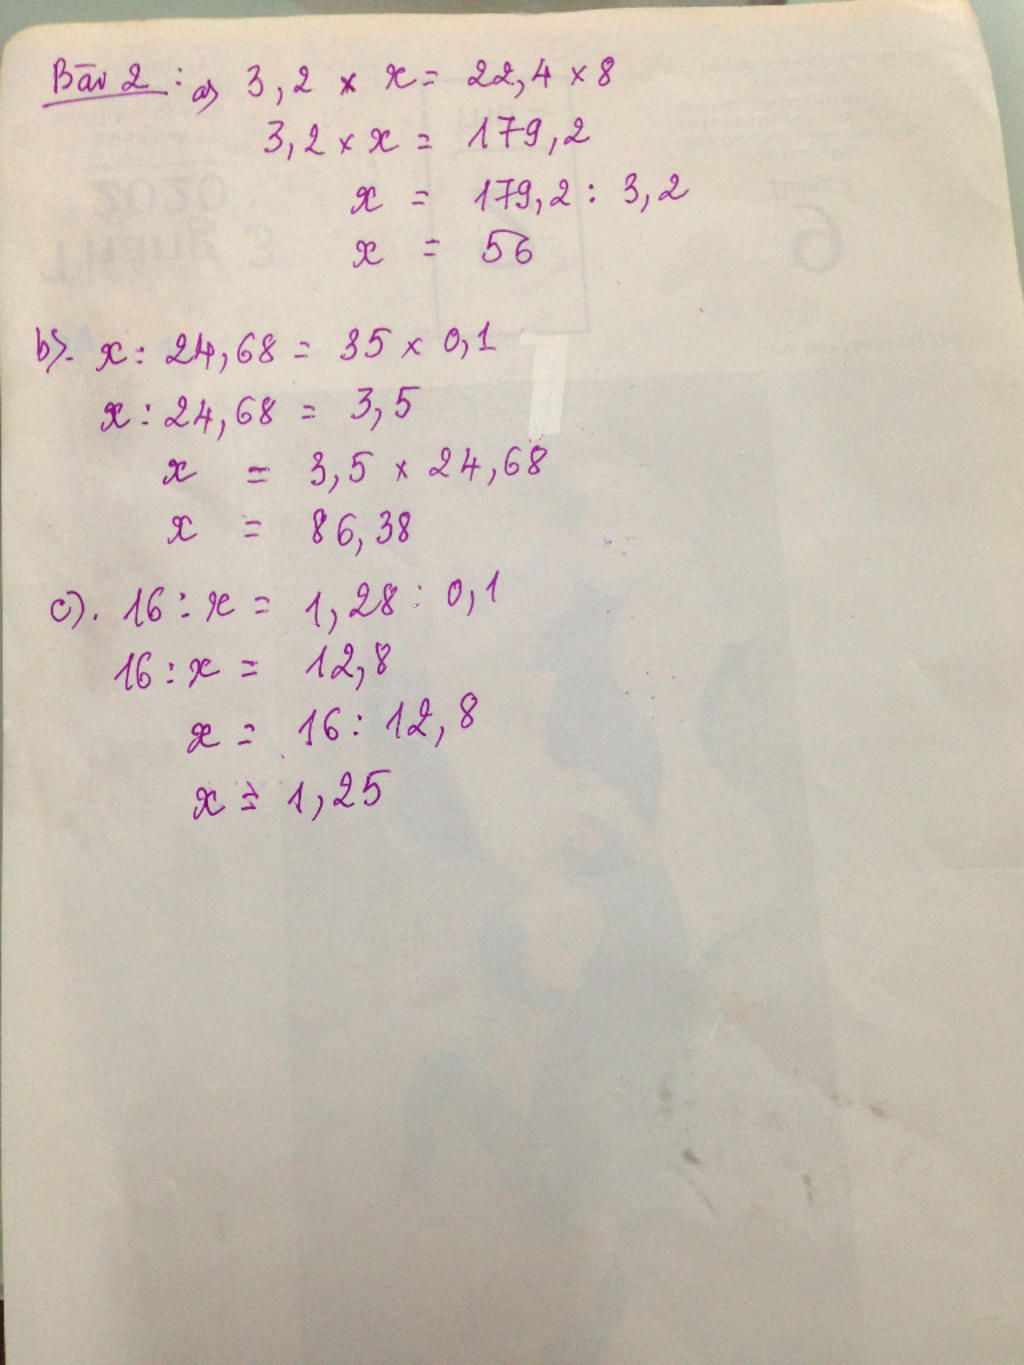 Bài 2 : a) 3,2 × x = 22,4 × 8
3,2 × x = 179,2
x = 179,2 : 3,2
x = 56
b). x : 24,68 = 35 × 0,1
x : 24,68 = 3,5
x = 3,5 × 24,68
x = 86,38
c). 16 : x = 1,28 : 0,1
16 : x = 12,8
x = 16 : 12,8
x = 1,25